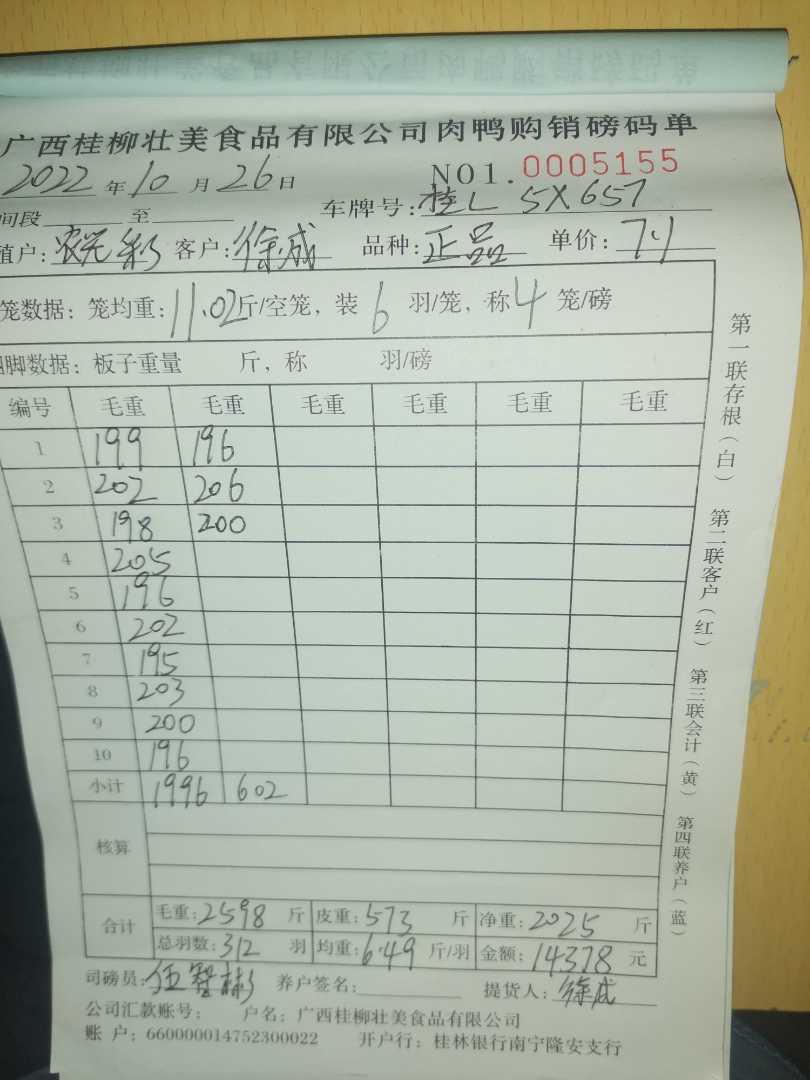 广西桂柳壮美食品有限公司肉鸭购销磅码单
2022 年 10 月 26 日 NO1. 0005155
间段 至 车牌号: 桂L 5X657
殖户: 客户: 徐成 品种: 正品 单价: 7.1
笼数据: 笼均重: 11.02 斤/空笼, 装 6 羽/笼, 称 4 笼/磅
脚数据: 板子重量 斤, 称 羽/磅
编号 毛重 毛重 毛重 毛重 毛重 毛重
1 199 196
2 202 206
3 198 200
4 205
5 196
6 202
7 195
8 203
9 200
10 196
小计 1996 602
核算
合计 毛重: 2598 斤 皮重: 573 斤 净重: 2025 斤
总羽数: 312 羽 均重: 6.49 斤/羽 金额: 14378 元
司磅员: 伍 彬 养户签名: 提货人: 徐成
公司汇款账号: 户名: 广西桂柳壮美食品有限公司
账 户: 660000014752300022 开户行: 桂林银行南宁隆安支行
第一联存根(白) 第二联客户(红) 第三联会计(黄) 第四联养户(蓝)